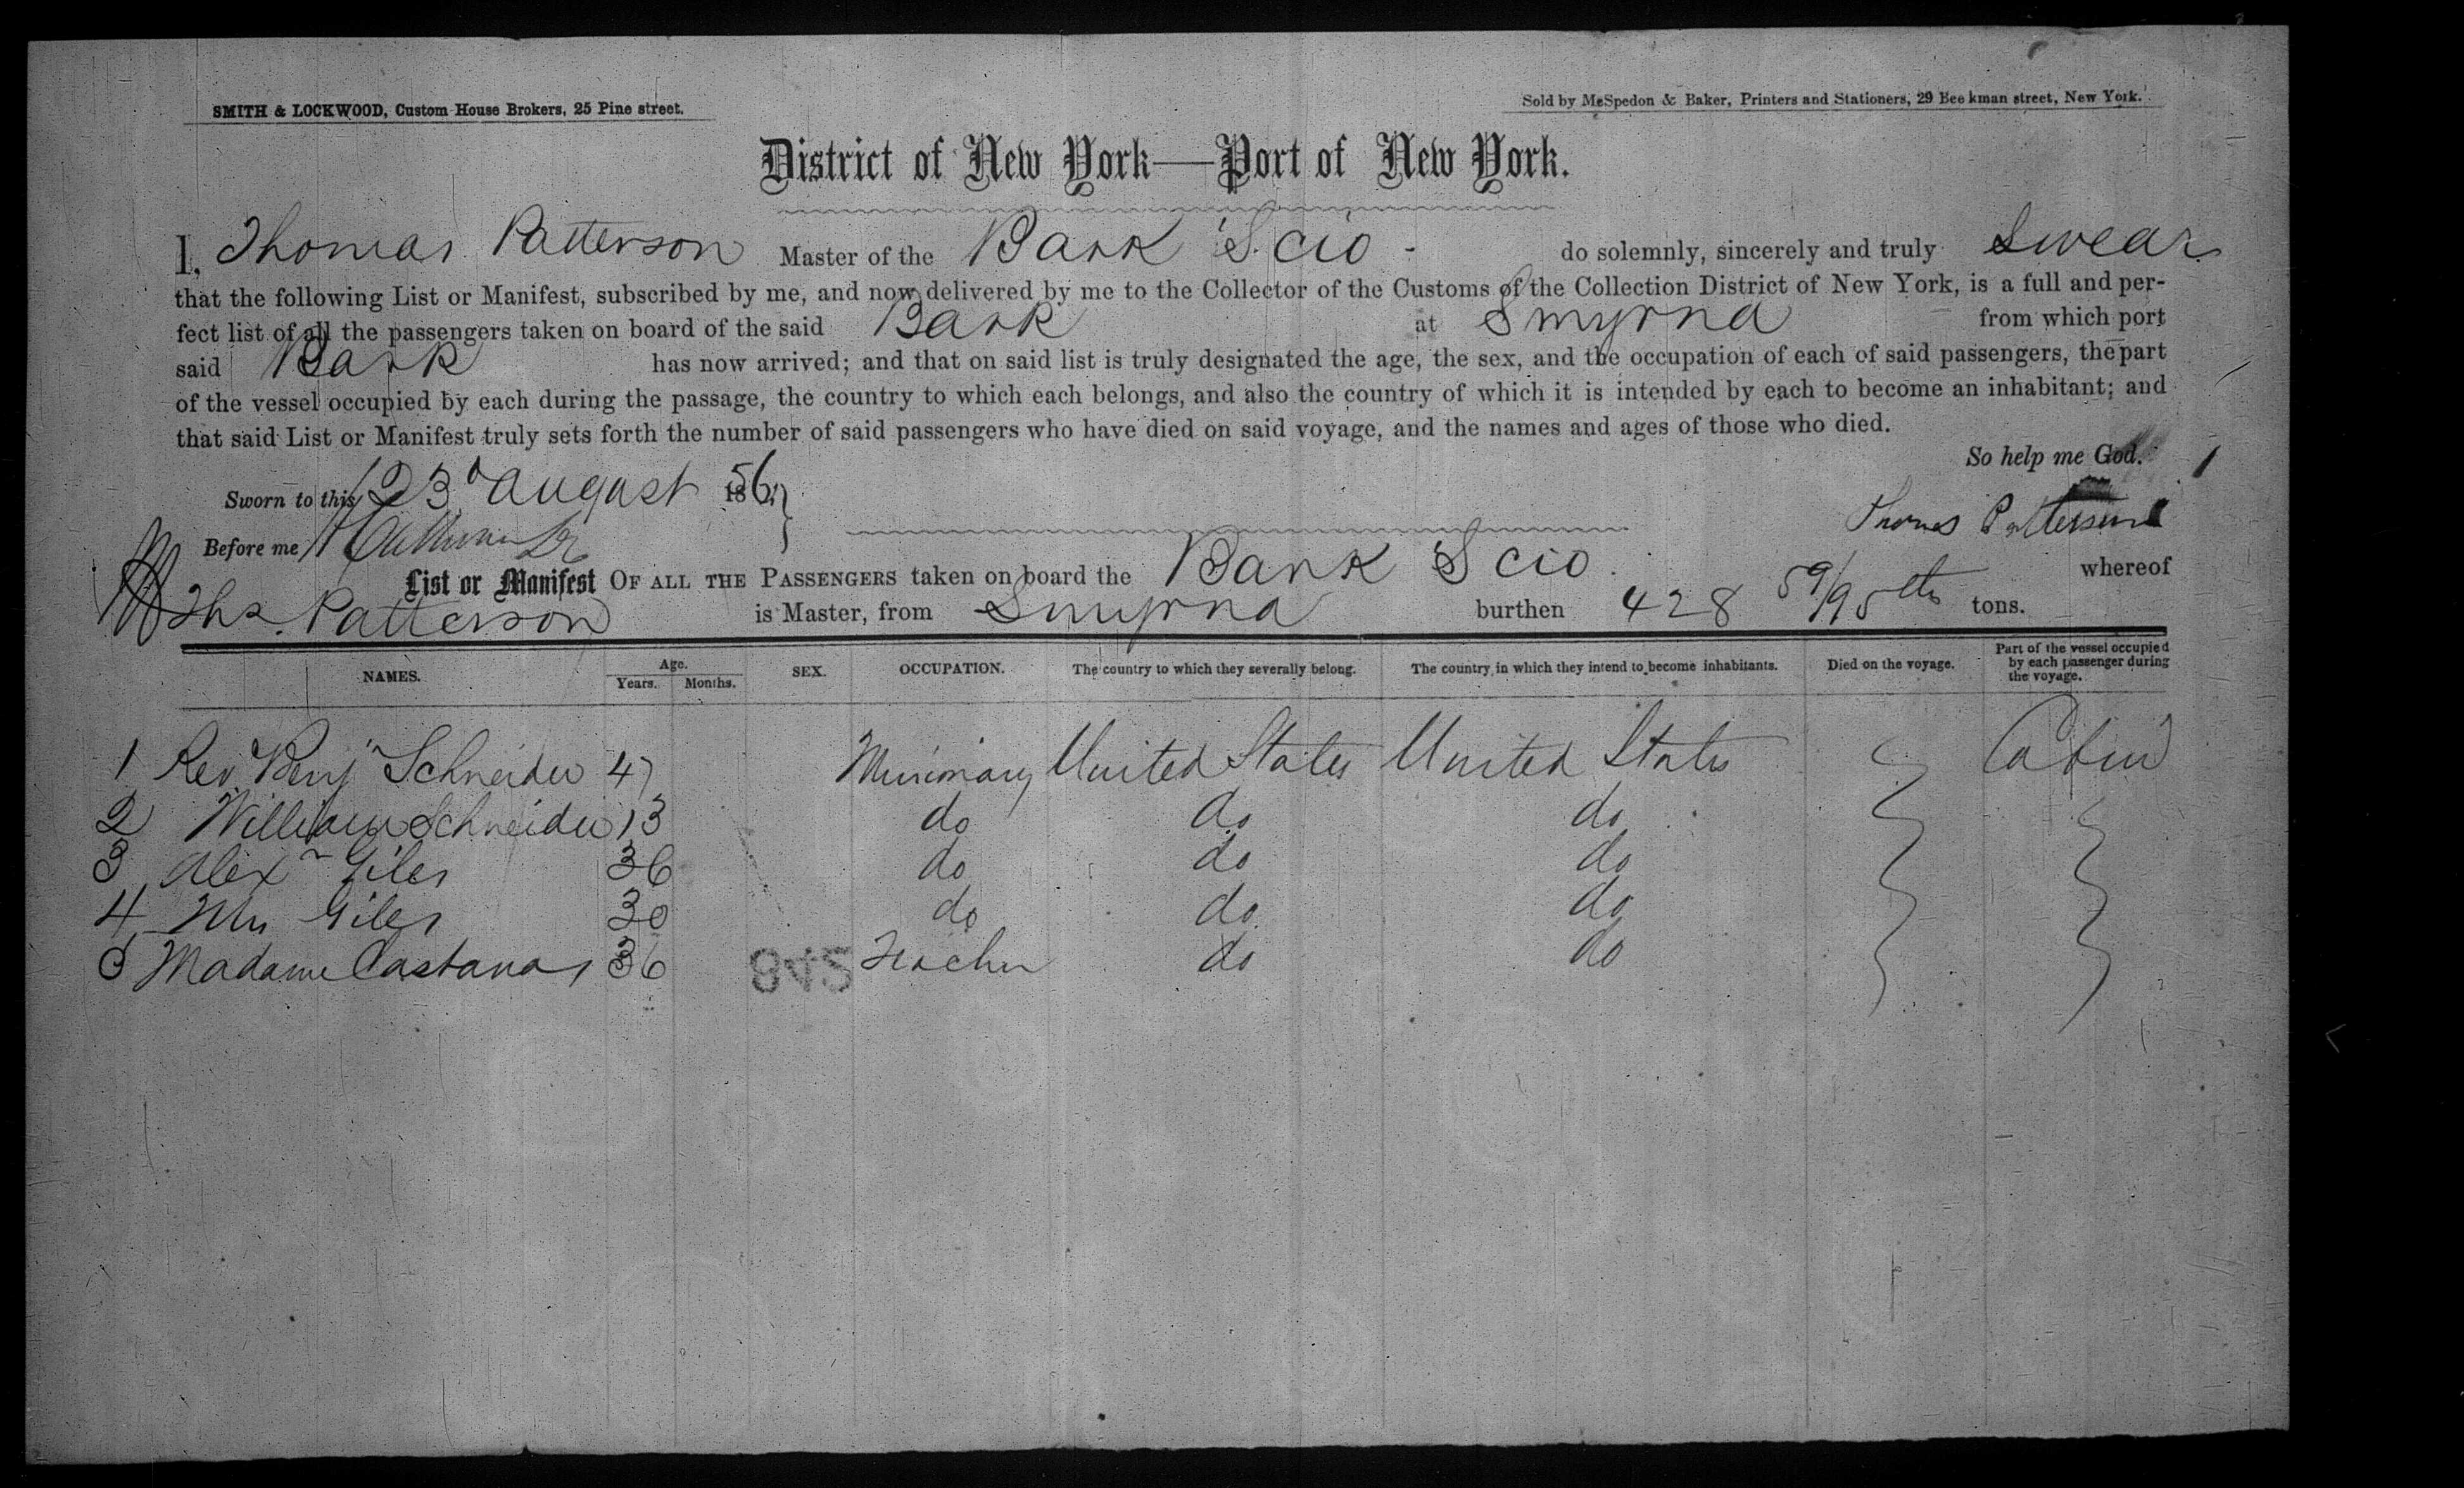 SMITH & LOCKWOOD, Custom House Brokers, 25 Pine street.
Sold by McSpedon & Baker, Printers and Stationers, 29 Beekman street, New York.
District of New York—Port of New York.
I, Thomas Patterson Master of the Bark Scio - do solemnly, sincerely and truly Swear
that the following List or Manifest, subscribed by me, and now delivered by me to the Collector of the Customs of the Collection District of New York, is a full and per-
fect list of all the passengers taken on board of the said Bark at Smyrna from which port
said Bark has now arrived; and that on said list is truly designated the age, the sex, and the occupation of each of said passengers, the part
of the vessel occupied by each during the passage, the country to which each belongs, and also the country of which it is intended by each to become an inhabitant; and
that said List or Manifest truly sets forth the number of said passengers who have died on said voyage, and the names and ages of those who died.
So help me God.
Sworn to this 23d August 1856
Thomas Patterson
Before me
List or Manifest OF ALL THE PASSENGERS taken on board the Bark Scio whereof
Ths. Patterson is Master, from Smyrna burthen 428 59/95ths tons.
NAMES. Age. Years. Months. SEX. OCCUPATION. The country to which they severally belong. The country in which they intend to become inhabitants. Died on the voyage. Part of the vessel occupied by each passenger during the voyage.
1 Rev Benjn Schneider 47 Missionary United States United States Cabin
2 William Schneider 13 do do do
3 Alexr Giles 36 do do do
4 Mrs Giles 30 do do do
5 Madame Castanas 36 Teacher do do
845